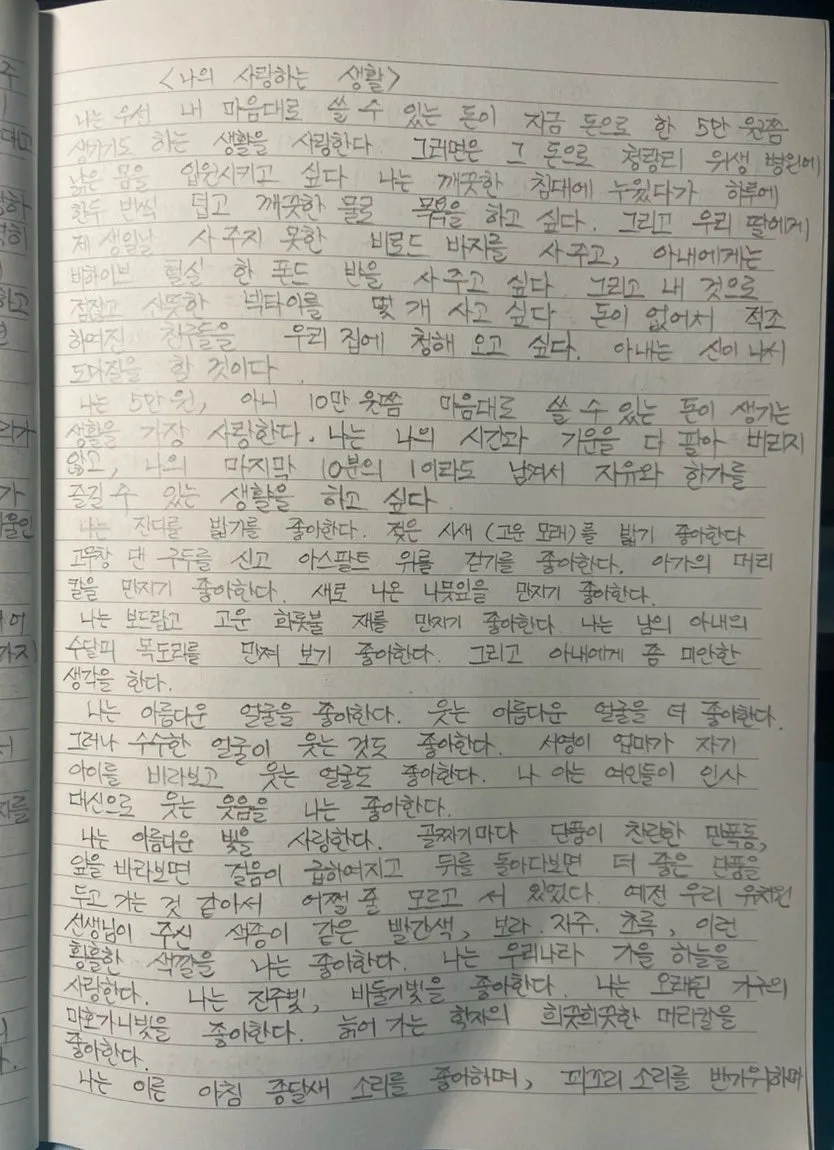 <나의 사랑하는 생활>
나는 우선 내 마음대로 쓸 수 있는 돈이 지금 돈으로 한 5만 원쯤
생기기도 하는 생활을 사랑한다. 그러면은 그 돈으로 청량리 위생 병원에
낡은 몸을 입원시키고 싶다 나는 깨끗한 침대에 누웠다가 하루에
한두 번씩 덥고 깨끗한 물로 목욕을 하고 싶다. 그리고 우리 딸에게
제 생일날 사 주지 못한 비로드 바지를 사 주고, 아내에게는
비하이브 털실 한 폰드 반을 사 주고 싶다 그리고 내 것으로
점잖고 산뜻한 넥타이를 몇 개 사고 싶다 돈이 없어서 적조
하여진 친구들을 우리 집에 청해 오고 싶다. 아내는 신이 나서
도마질을 할 것이다.
나는 5만 원, 아니 10만 원쯤 마음대로 쓸 수 있는 돈이 생기는
생활을 가장 사랑한다. 나는 나의 시간과 기운을 다 팔아 버리지
않고, 나의 마지막 10분의 1이라도 남겨서 자유와 한가를
즐길 수 있는 생활을 하고 싶다
나는 잔디를 밟기를 좋아한다. 젖은 시새 (고운 모래)를 밟기 좋아한다
고무창 댄 구두를 신고 아스팔트 위를 걷기를 좋아한다. 아가의 머리
칼을 만지기 좋아한다. 새로 나온 나뭇잎을 만지기 좋아한다.
나는 보드랍고 고운 화롯불 재를 만지기 좋아한다 나는 남의 아내의
수달피 목도리를 만져 보기 좋아한다. 그리고 아내에게 좀 미안한
생각을 한다.
나는 아름다운 얼굴을 좋아한다. 웃는 아름다운 얼굴을 더 좋아한다.
그러나 수수한 얼굴이 웃는 것도 좋아한다. 서영이 엄마가 자기
아이를 바라보고 웃는 얼굴도 좋아한다. 나 아는 여인들이 인사
대신으로 웃는 웃음을 나는 좋아한다.
나는 아름다운 빛을 사랑한다. 골짜기마다 단풍이 찬란한 만폭동,
앞을 바라보면 걸음이 급하여지고 뒤를 돌아다보면 더 좋은 단풍을
두고 가는 것 같아서 어쩔 줄 모르고 서 있었다. 예전 우리 유치원
선생님이 주신 색종이 같은 빨간색, 보라. 자주. 초록, 이런
황홀한 색깔을 나는 좋아한다. 나는 우리나라 가을 하늘을
사랑한다. 나는 진주빛, 비둘기빛을 좋아한다. 나는 오래된 가구의
마호가니빛을 좋아한다. 늙어 가는 학자의 희끗희끗한 머리칼을
좋아한다.
나는 이른 아침 종달새 소리를 좋아하며, 꾀꼬리 소리를 반가워하며